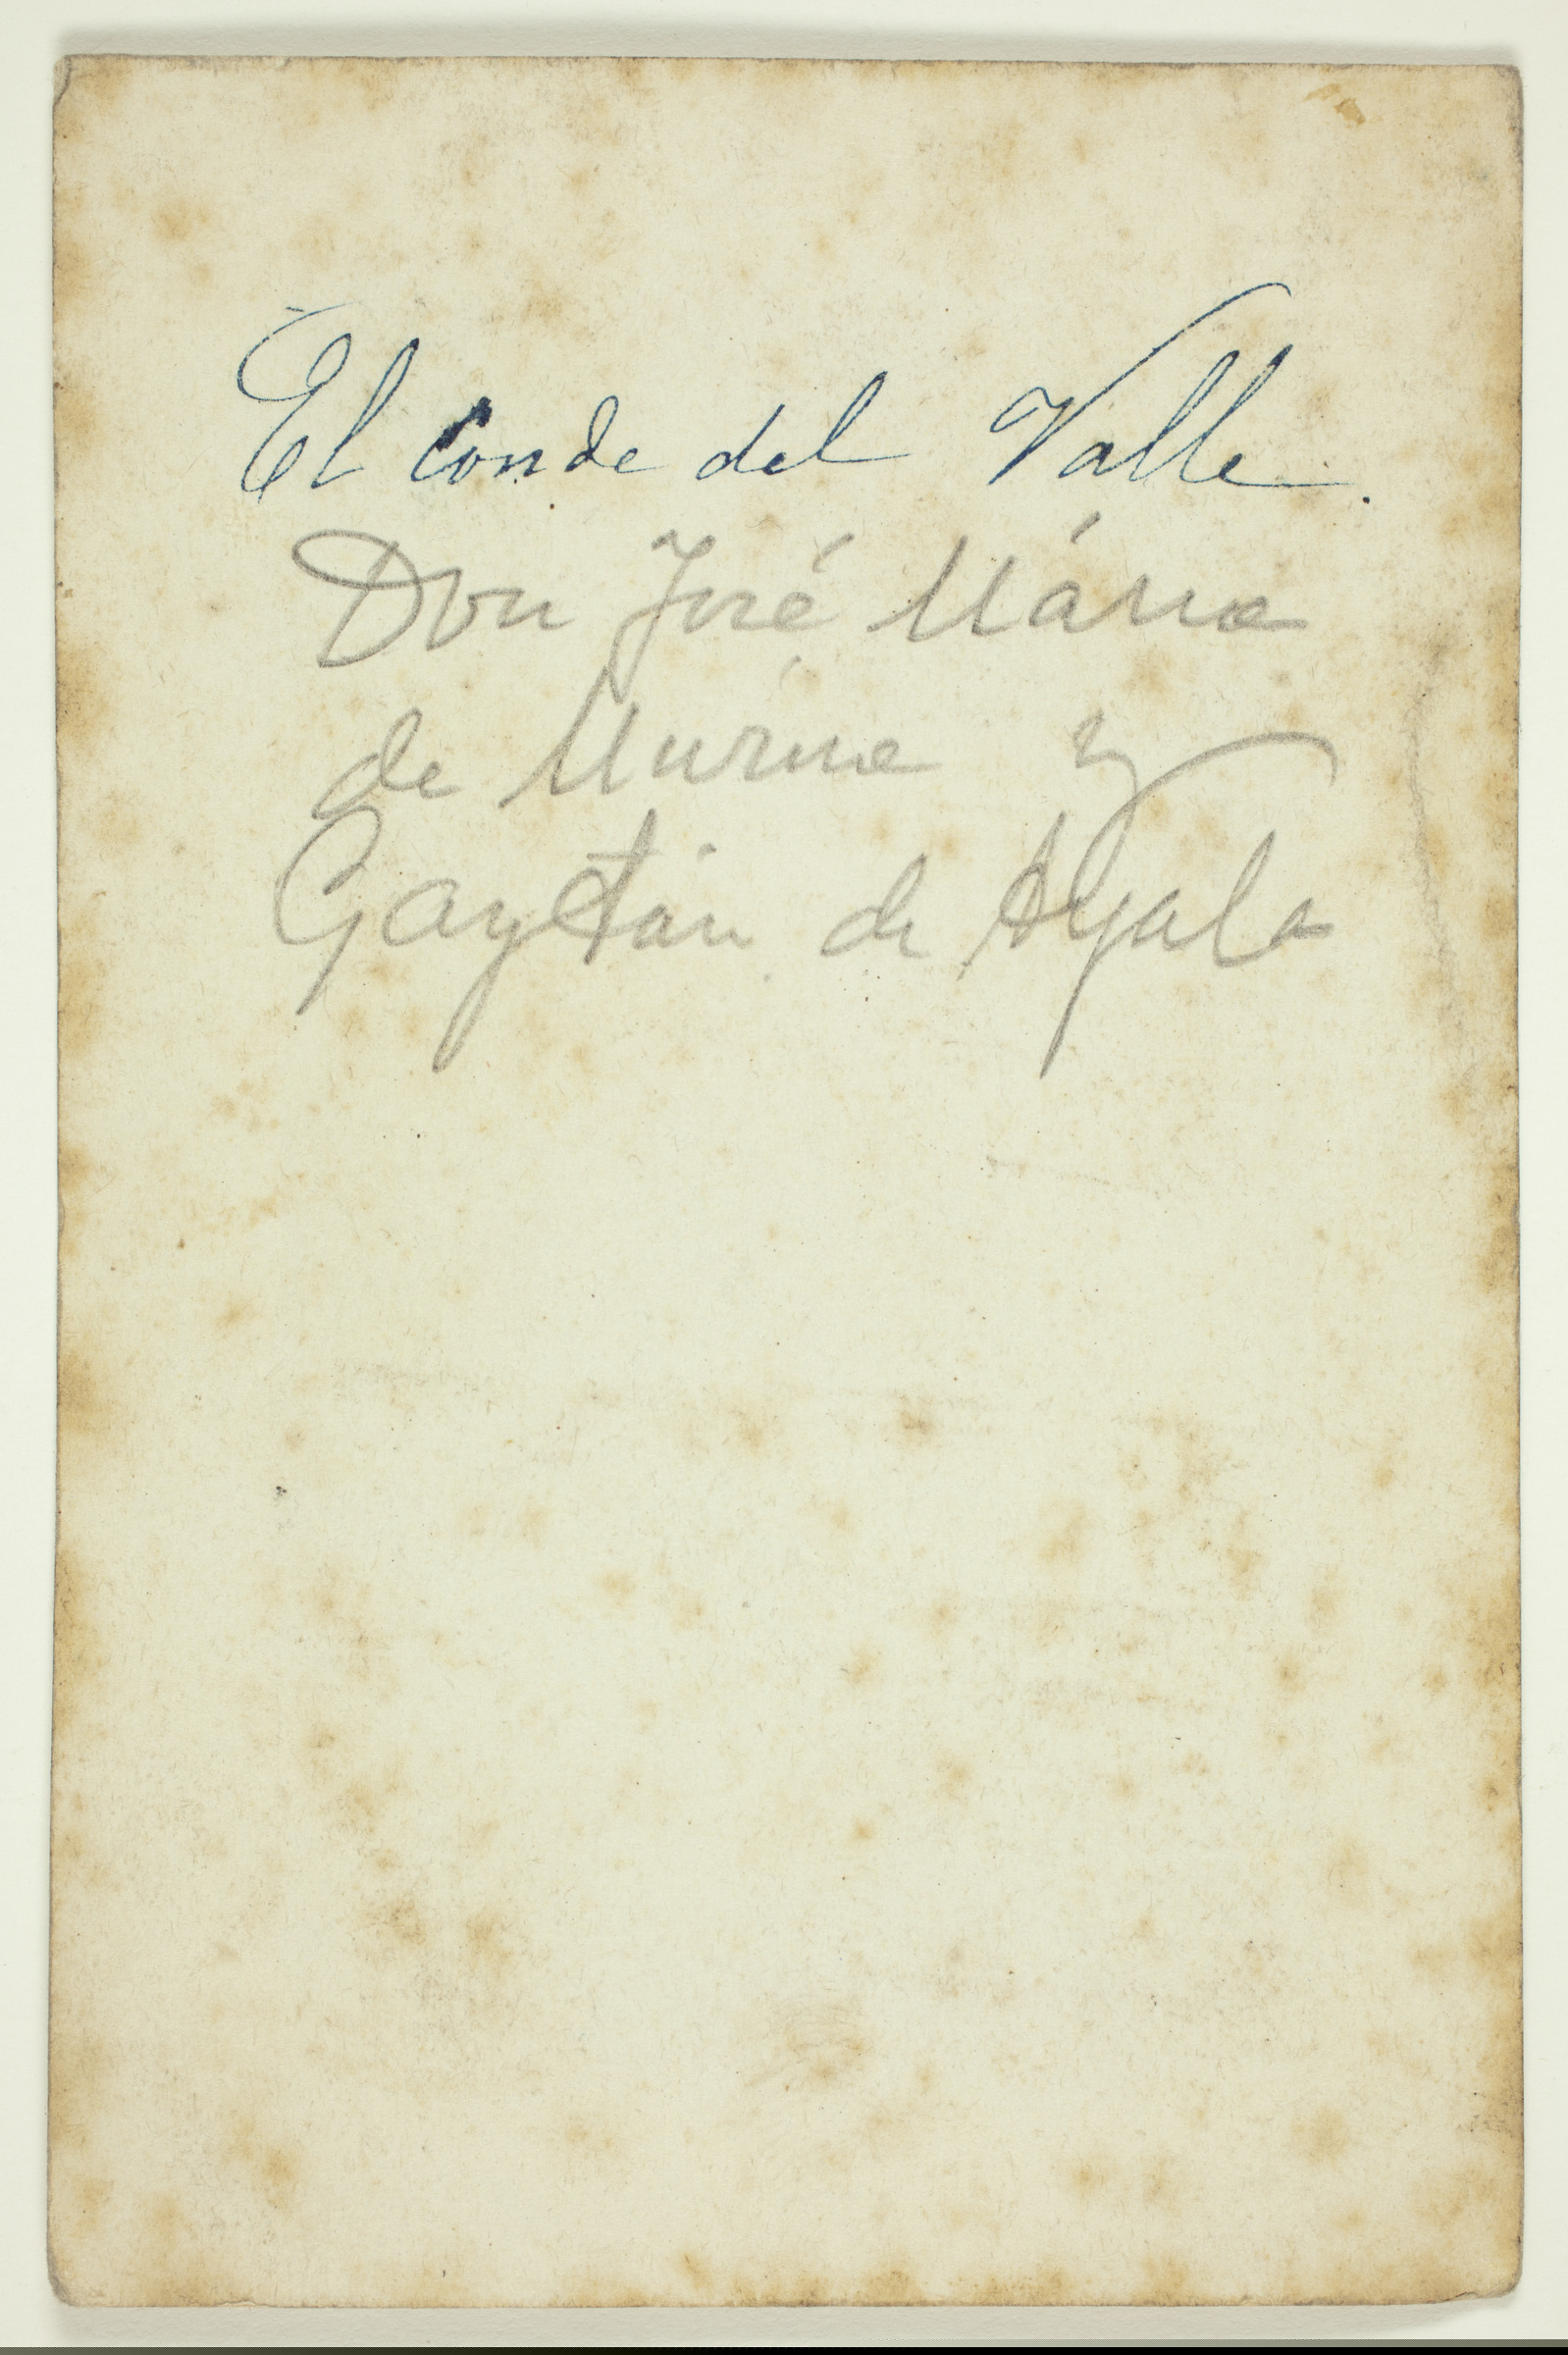 El Conde del Valle.
Don José Mária
de Murua y
Gaytán de Ayala